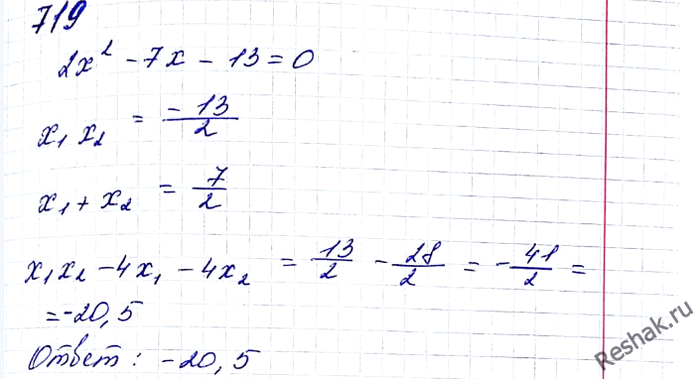 719
2x² - 7x - 13 = 0
x₁ x₂ = -13/2
x₁ + x₂ = 7/2
x₁x₂ - 4x₁ - 4x₂ = 13/2 - 28/2 = - 41/2 =
= -20,5
Ответ: -20,5
Reshak.ru